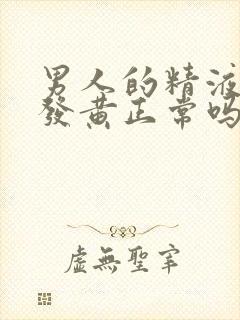 男人的精液
發黄正常吗
虚無聖宰